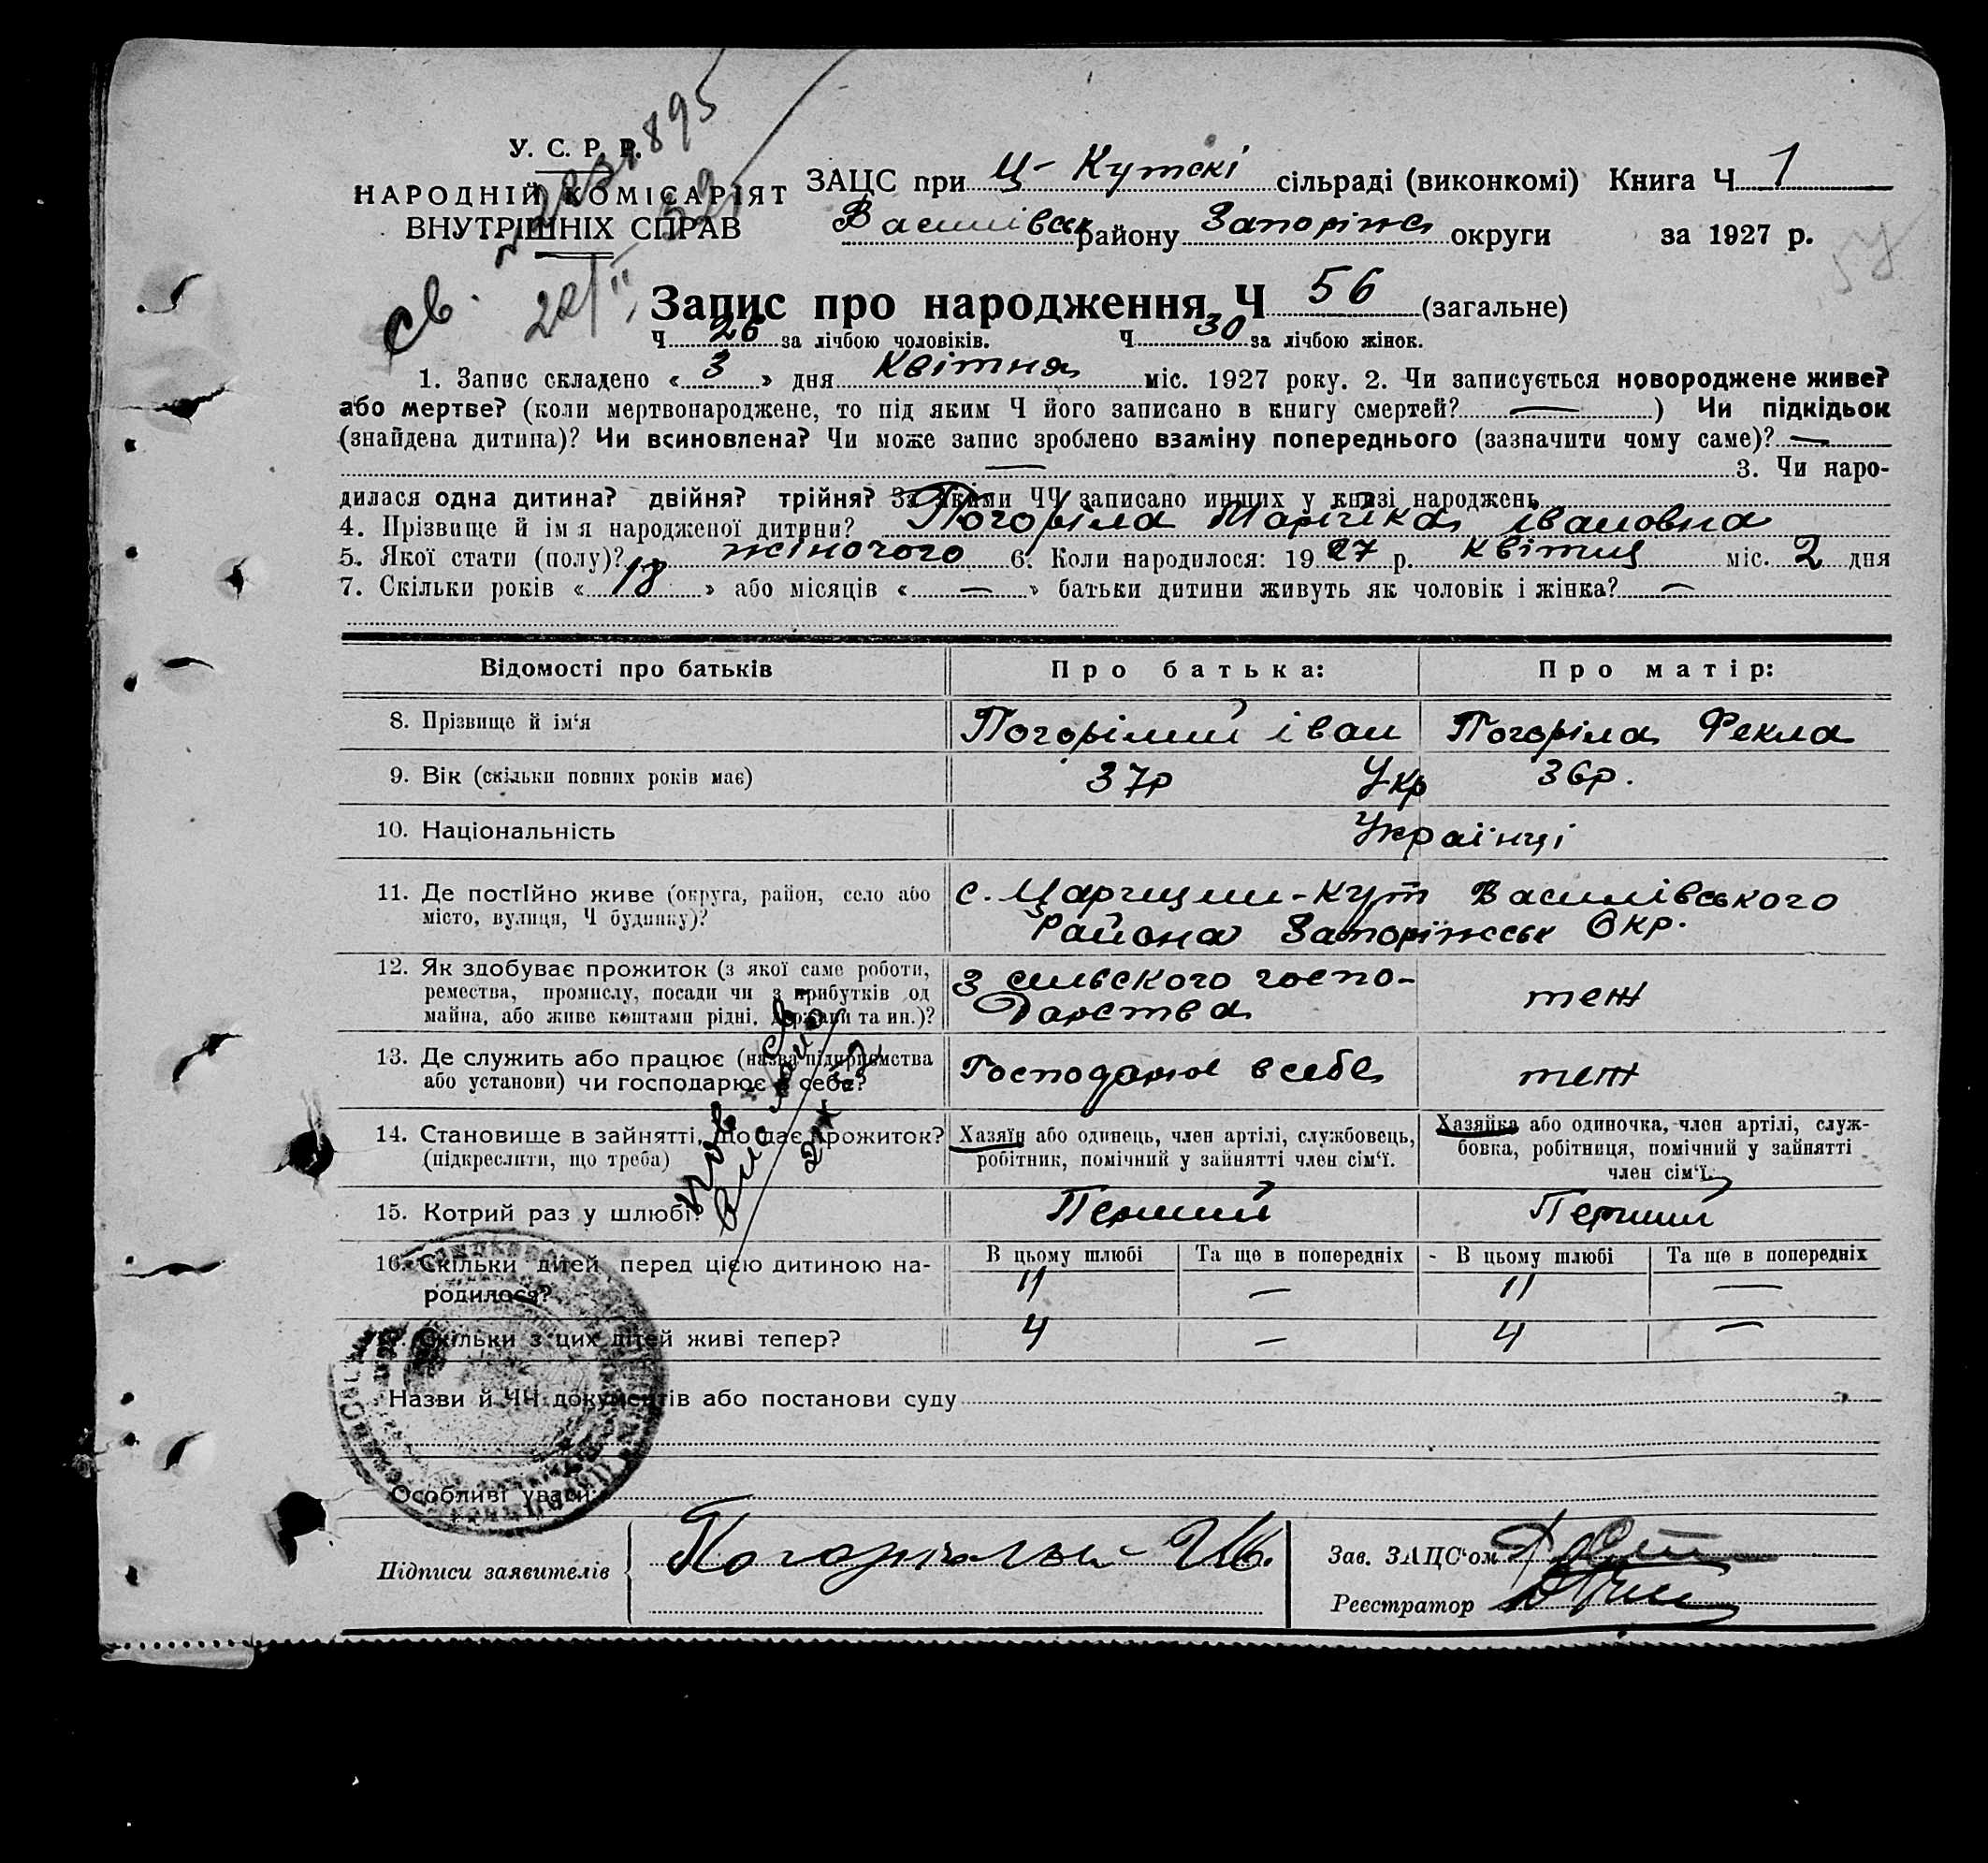 У. С. Р. Р.
НАРОДНІЙ КОМІСАРІЯТ
ВНУТРІШНІХ СПРАВ
ЗАЦС при Ц- Кутскі сільраді (виконкомі) Книга Ч 1
Василівськ району Запоріж округи за 1927 р.
57
св.
Запис про народження Ч 56 (загальне)
Ч 26 за лічбою чоловіків. Ч 30 за лічбою жінок.
1. Запис складено « 3 » дня Квітня міс. 1927 року. 2. Чи записується новороджене живе?
або мертве? (коли мертвонароджене, то під яким Ч його записано в книгу смертей? — ) Чи підкідьок
(знайдена дитина)? Чи всиновлена? Чи може запис зроблено взаміну попереднього (зазначити чому саме)? —
— 3. Чи наро-
дилася одна дитина? двійня? трійня? За якими ЧЧ записано инших у книзі народжень
4. Прізвище й ім я народженої дитини? Погоріла івановна
5. Якої стати (полу)? жіночого 6. Коли народилося: 19 27 р. квітня міс. 2 дня
7. Скільки років « 18 » або місяців « — » батьки дитини живуть як чоловік і жінка? —
Відомості про батьків Про батька: Про матір:
8. Прізвище й ім'я Погорілий іван Погоріла Фекла
9. Вік (скільки повних років має) 37р Укр 36р.
10. Національність Українці
11. Де постійно живе (округа, район, село або
місто, вулиця, Ч будинку)?
с. Царицин-Кут Василівського
Района Запоріжськ Окр.
12. Як здобуває прожиток (з якої саме роботи,
ремества, промислу, посади чи з прибутків од
майна, або живе коштами рідні, держави та ин.)?
З сильского госпо-
дарства теж
13. Де служить або працює (назва підприємства
або установи) чи господарює в себе?
Господарює в себе теж
14. Становище в зайнятті, що дає прожиток?
(підкреслити, що треба)
Хазяїн або одинець, член артілі, службовець,
робітник, помічний у зайнятті член сім'ї.
Хазяйка або одиночка, член артілі, служ-
бовка, робітниця, помічний у зайнятті
член сім'ї.
15. Котрий раз у шлюбі? Перший Перший
16. Скільки дітей перед цією дитиною на-
родилося?
В цьому шлюбі Та ще в попередніх В цьому шлюбі Та ще в попередніх
11 — 11 —
17. Скільки з цих дітей живі тепер? 4 — 4 —
Назви й ЧЧ документів або постанови суду
Особливі уваги:
Підписи заявителів Погорільий Ив.
Зав. ЗАЦС'ом
Реєстратор